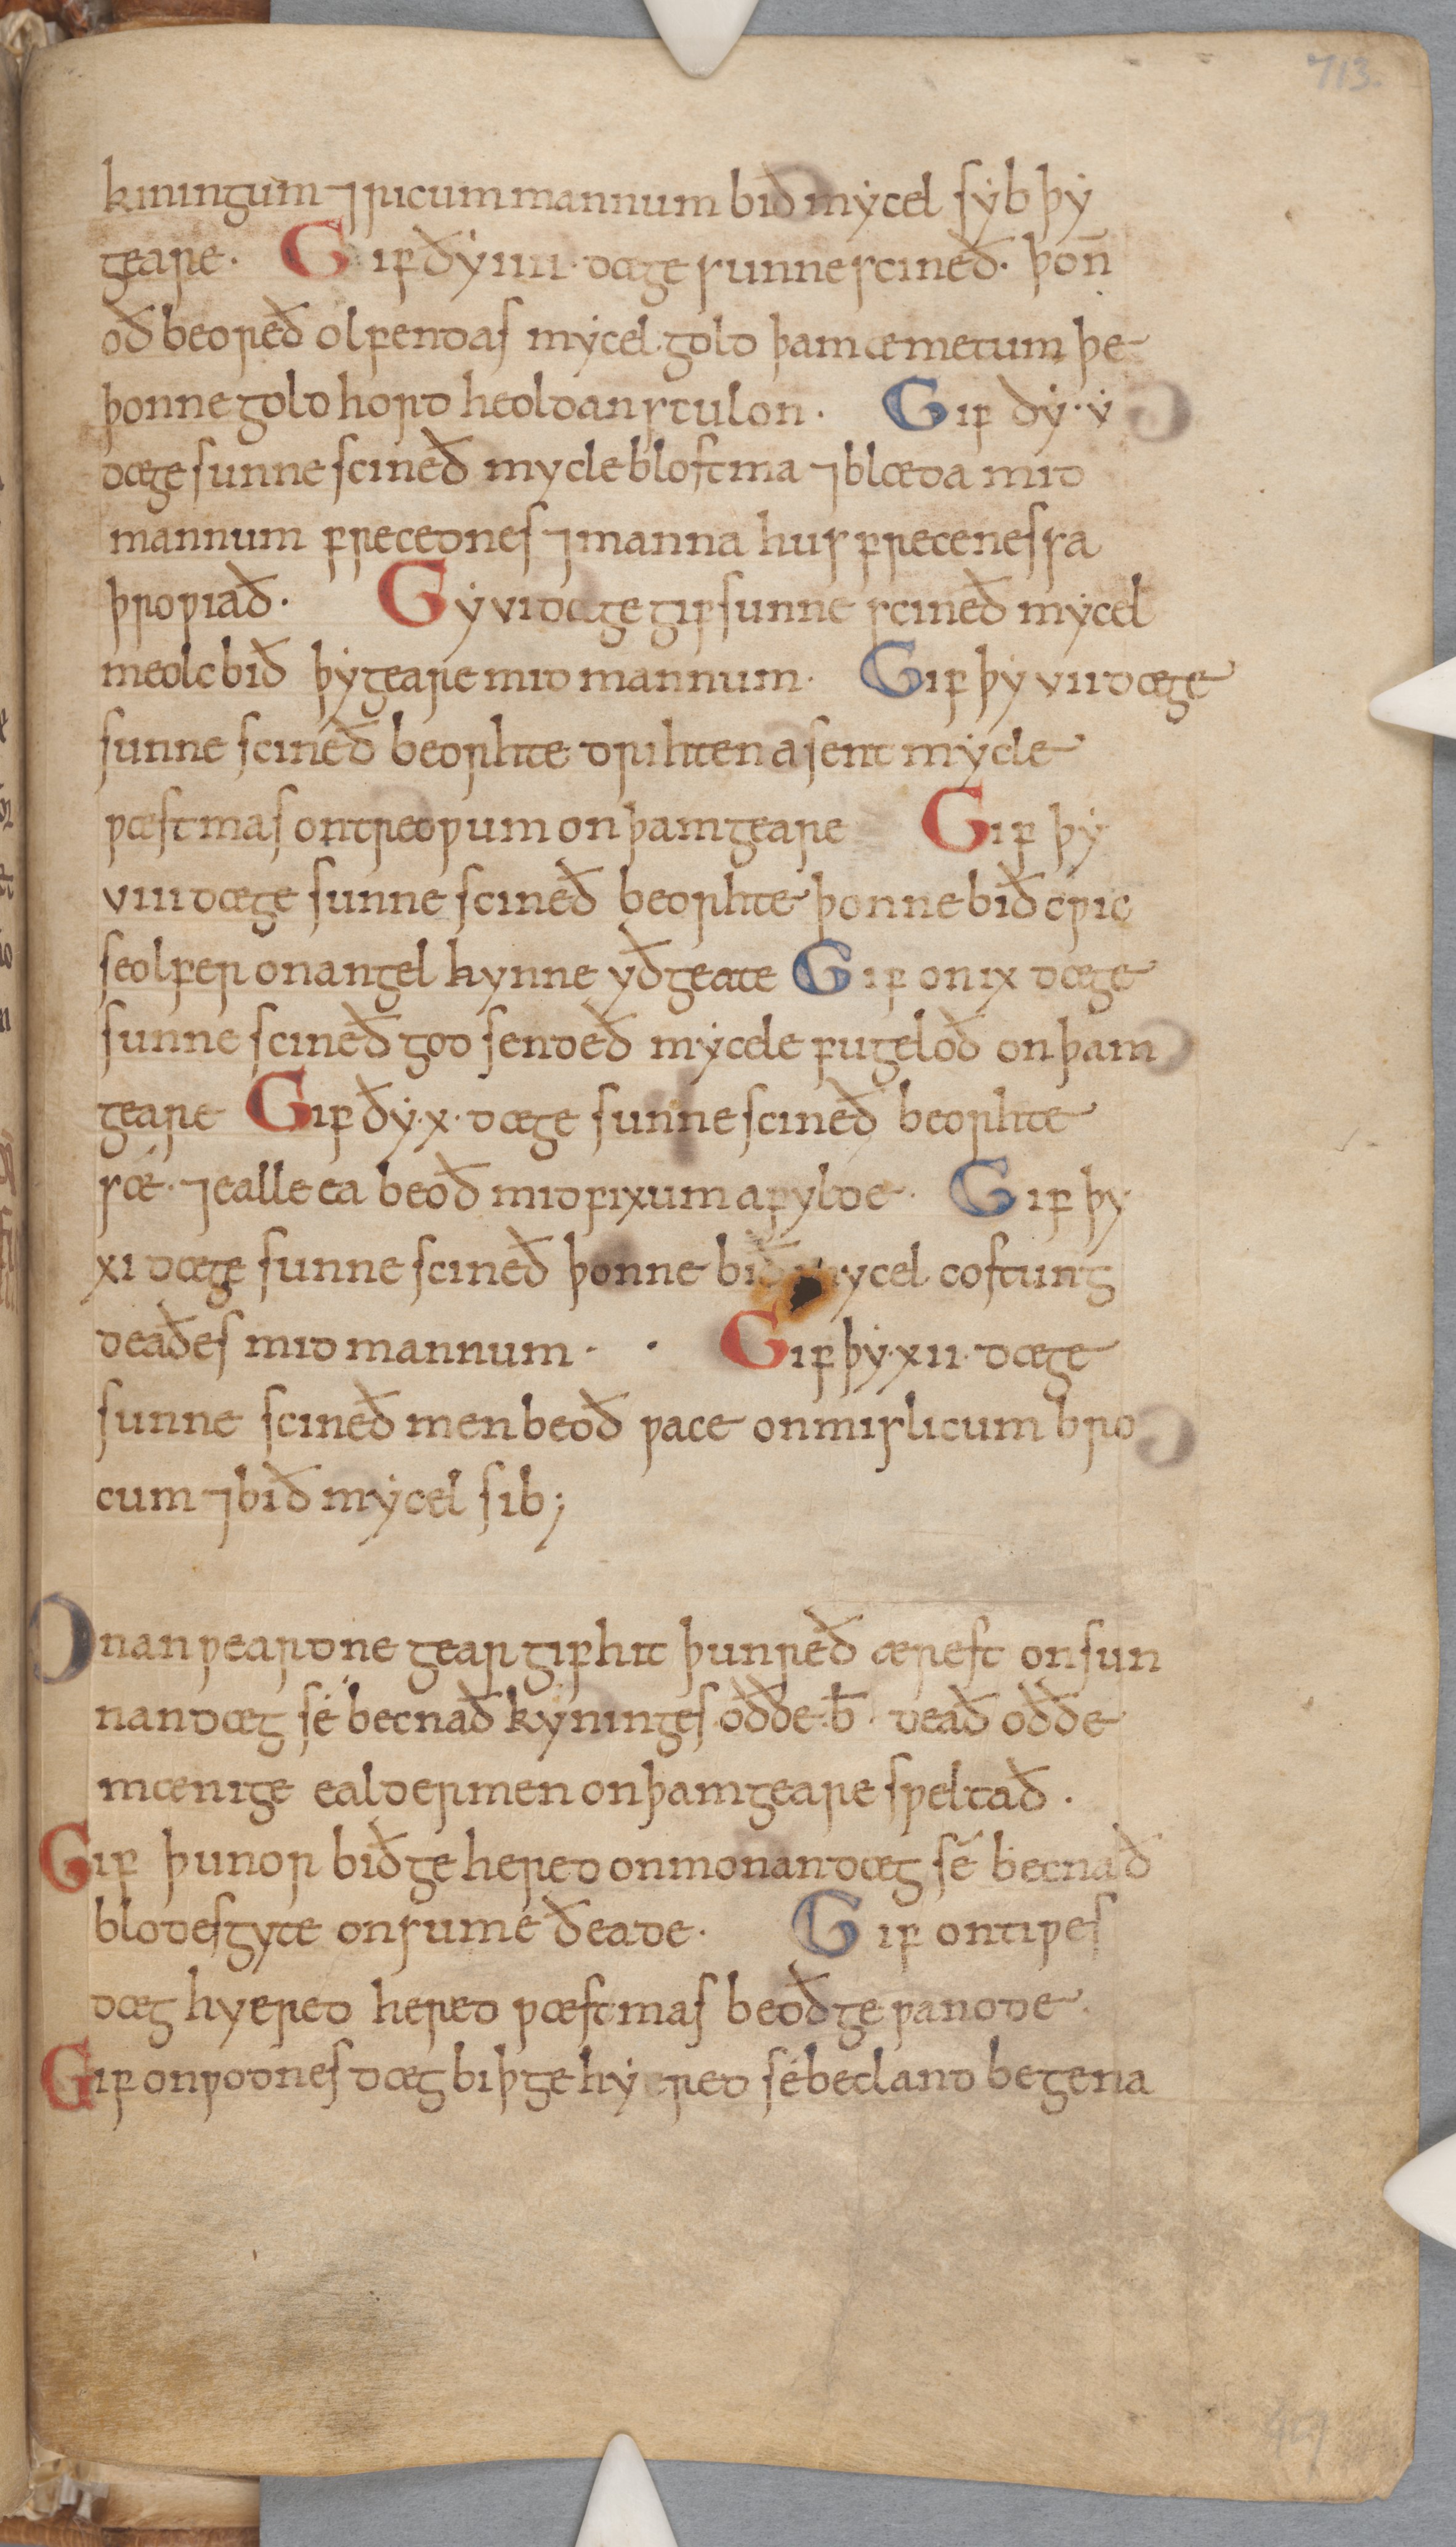 713.
kiningum ⁊ ricum mannum bið mẏcel sẏb þẏ
geare. Gif ðẏ iiii. dæge sunne scineð. þoñ
oð bereð olfendas mẏcel gold þam æmetum þe
þonne goldhord healdan sculon. Gif ðẏ. v̇
dæge sunne scineð mycle blostma ⁊ blæda mid
mannum frecednes ⁊ manna hus frecenessa
þrowiað. Gẏ vi dæge gif sunne scineð mẏcel
meolc bið þẏ geare mid mannum. Gif þy vii dæge
sunne scineð beorhte drihten asent mẏcle
wæstmas on treowum on þam geare Gif þẏ
viii dæge sunne scineð beorhte þonne bið cwic
seolfer on angel kynne yðgeate Gif on ix dæge
sunne scineð god sendeð mẏcele fugeloð on þam
geare Gif ðẏ. x. dæge sunne scineð beorhte
sǽ. ⁊ ealle ea beoð mid fixum afylde. Gif þy
xi dæge sunne scineð þonne bið mycel costung
deaðes mid mannum. . Gif þẏ. xii. dæge
sunne scineð men beoð wace on mislicum bro
cum ⁊ bið mẏcel sib;
Onanweardne gear gif hit þunreð ærest on sun
nandæg sé becnað kẏninges oððe b̄. deað oððe
mænige ealdermen on þam geare sweltað.
Gif þunor bið gehered on monandæg sé becnað
blodesgyte on sume ðeade. Gif on tiwes
dæg hyered hered wæstmas beoð gewanode.
Gif on wodnesdæg biþ gehẏered sé becland begena